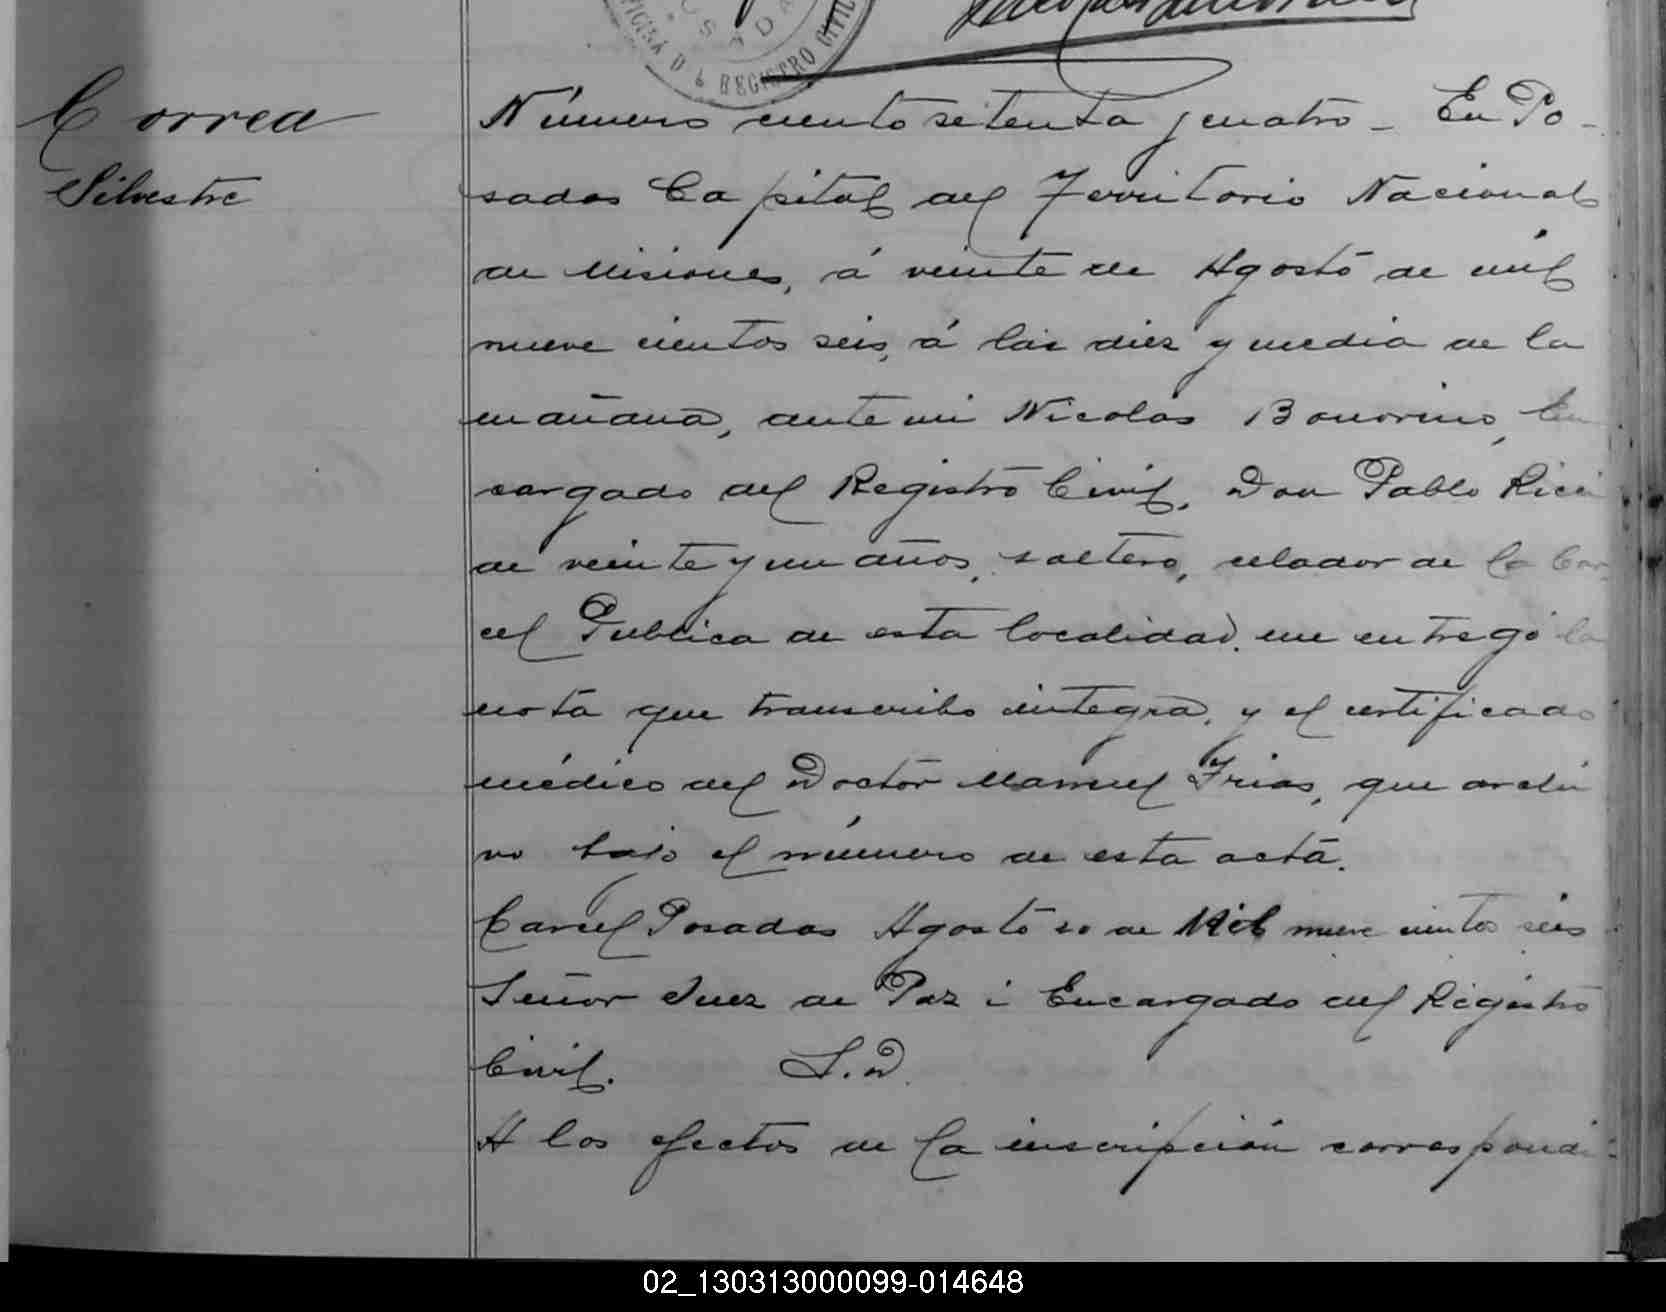 OFICINA D L REGISTRO CIVIL
Correa
Silvestre
Número ciento setenta y cuatro _ En Po-
sadas Capital del Territorio Nacional
de Misiones, á veinte de Agosto de mil
nueve cientos seis, á las diez y media de la
mañana, ante mi Nicolas Bonorino, En
cargado del Registro Civil, Don Pablo Ricci
de veinte y un años, soltero, celador de la Car
cel Publica de esta localidad, me entregó la
nota que transcribo integra, y el certificado
médico del Doctor Manuel Frias, que archi
vo bajo el número de esta acta.
Carcel Posadas Agosto 20 de Mil nueve cientos seis
Señor Juez de Paz i Encargado del Registro
Civil. S.D.
A los efectos de la inscripción correspondi-
02_130313000099-014648